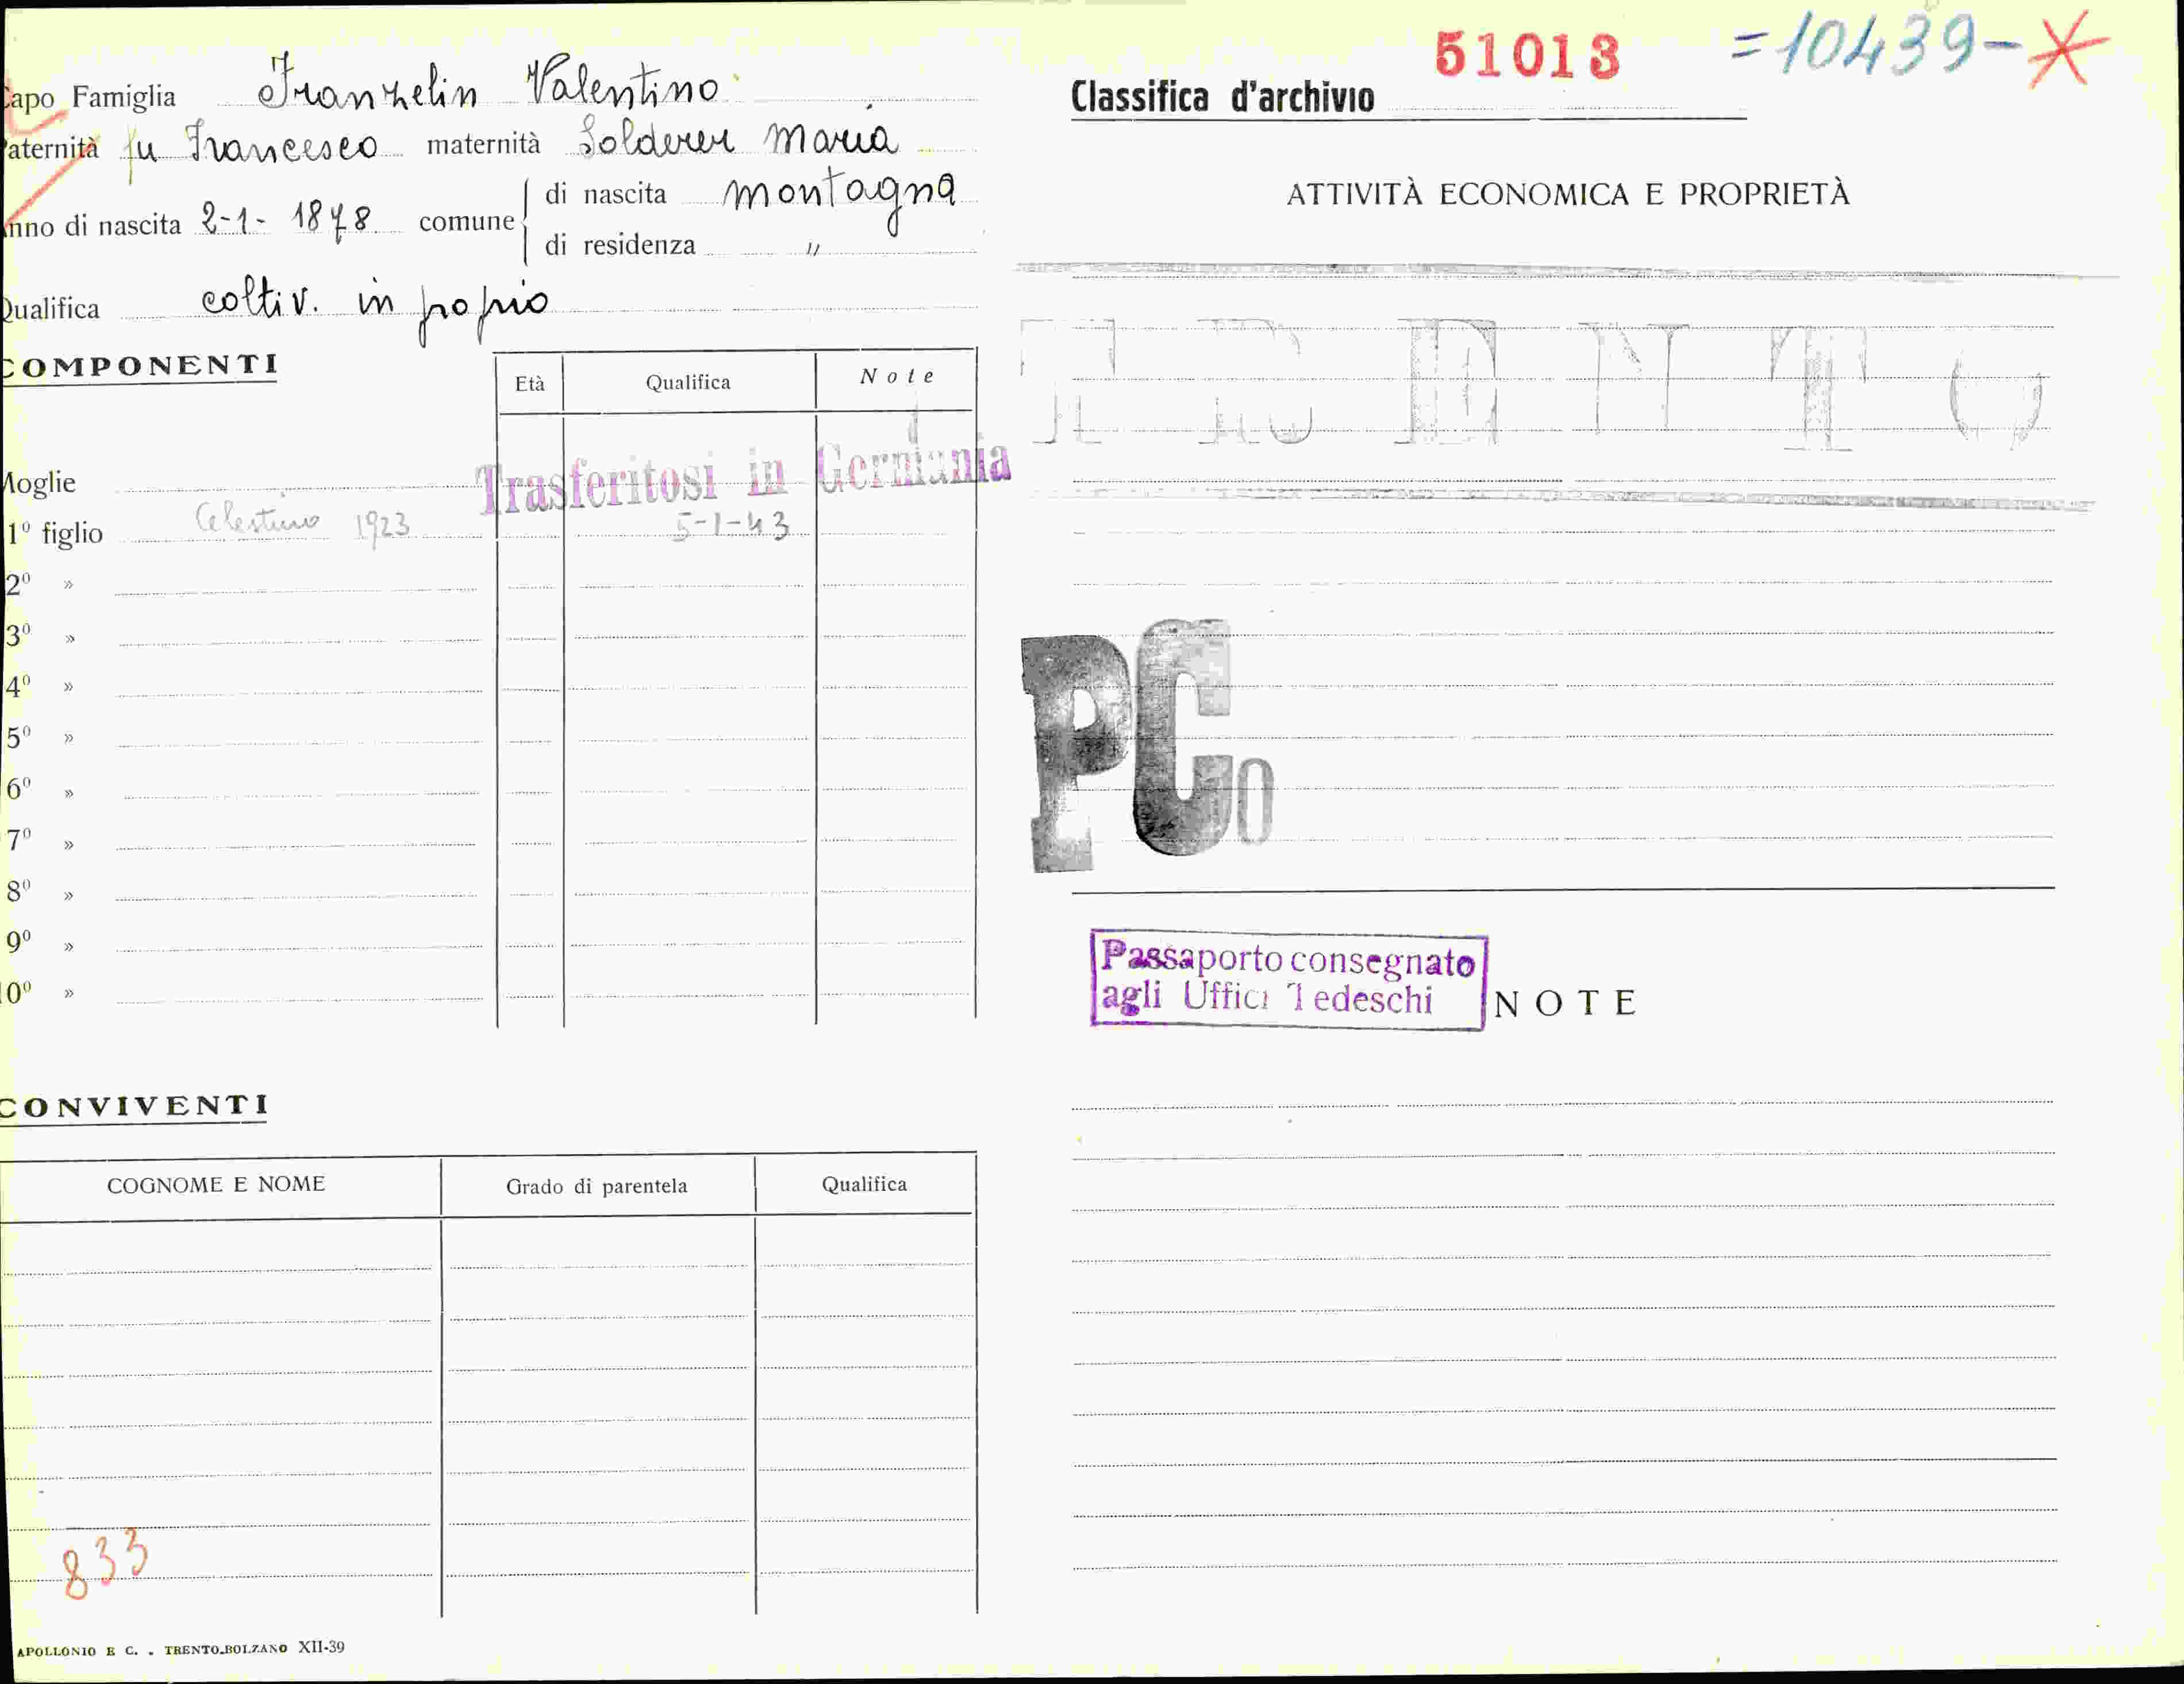 Capo Famiglia Franzelin Valentino
Paternità fu Francesco maternità Solderer Maria
Anno di nascita 2-1-1878 comune di nascita Montagna
di residenza "
Qualifica coltiv. in proprio
COMPONENTI
Età Qualifica Note
Moglie
Trasferitosi in Germania
1º figlio Celestino 1923 5-1-43
2º »
3º »
4º »
5º »
6º »
7º »
8º »
9º »
10º »
CONVIVENTI
COGNOME E NOME Grado di parentela Qualifica
833
APOLLONIO E C. - TRENTO-BOLZANO XII-39
51013 =10439-
Classifica d'archivio
ATTIVITÀ ECONOMICA E PROPRIETÀ
TRENTO
PC0
Passaporto consegnato
agli Uffici Tedeschi
NOTE